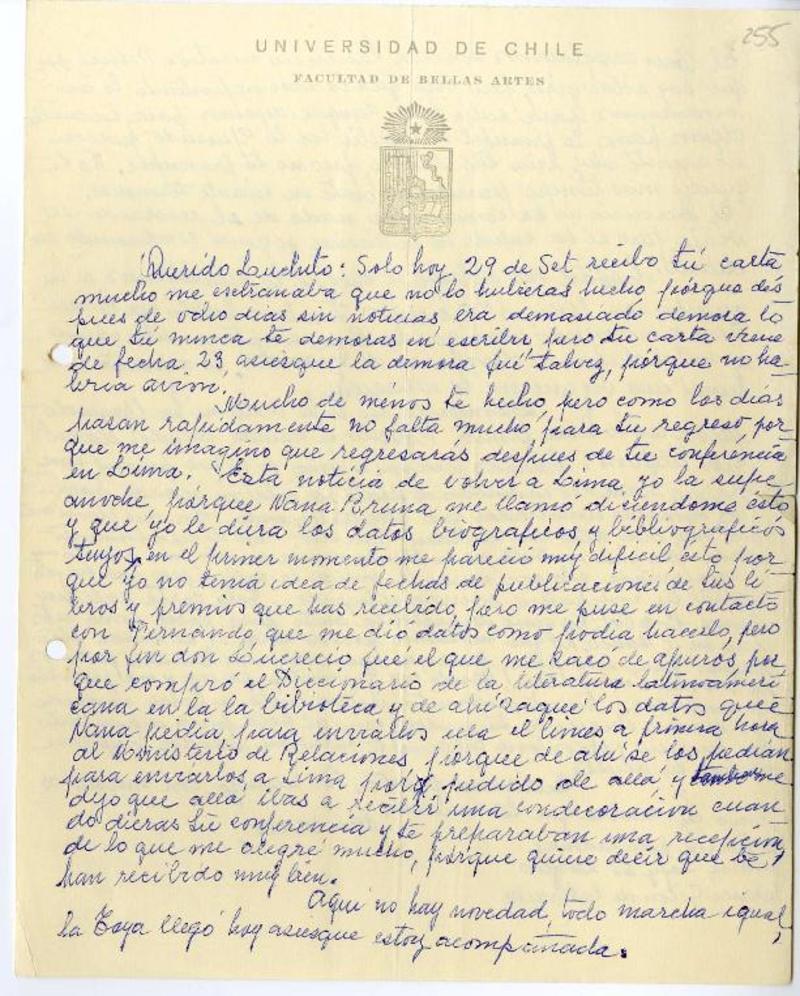 255
UNIVERSIDAD DE CHILE
FACULTAD DE BELLAS ARTES
Querido Luchito: Solo hoy 29 de Set recibo tú carta
mucho me extrañaba que no lo hubieras hecho, pórque des
pues de ocho dias sin noticias era demasiado demora lo
que tú nunca te demoras en escribir pero tu carta viene
de fecha 23, asiesque la demora fué talvez, pórque no ha-
bria avión.
Mucho de ménos te hecho, pero como los dias
pasan rapidamente no falta mucho para tu regreso, por-
que me imagino que regresarás despues de tu conferéncia
en Lima. Esta noticia de volver a Lima yo la supe
anoche, pórque Nana Bruna me llamó diciendome ésto
y que yo le diéra los datos biograficos y bibliograficos
tuyos, en el primer momento me pareció muy dificil, esto, por
que yo no tenia idea de fechas de publicaciones de tus li-
bros y premios que has recibido, pero me puse en contacto
con Fernando, que me dió datos como podia hacerlo, pero
por fin don Loucrecio fué el que me sacó de apuros, por
que compró el Diccionario de la literatura latinoameri
cana en la la bibioteca y de ahí zaqué los datos que
Nana pedia, para enviárlos el lunes a primera hora
al Ministerio de Relaciones, pórque de ahí se los pedian
para enviarlos, a Lima por pedido de alla, y me
dijo que alla ibas a recibir una condecoración cuan
do dieras tu conferéncia y te preparaban una recepción
de lo que me alegré mucho, pórque quiere decir que te
han recibido muy bien.
Aquí no hay novedad, todo marcha igual,
la Toya llegó hoy asiesque estoy acompañada.